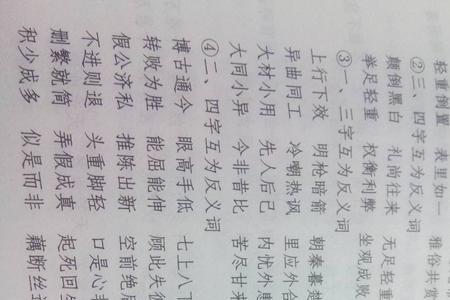 轻重倒置 表里如一 雅俗共
②三、四字互为反义词
颠倒黑白 礼尚往来 无足轻重
举足轻重 权衡利弊 坐观成败
③一、三字互为反义词
上行下效 明枪暗箭 朝秦暮楚
异曲同工 冷嘲热讽 里应外合
大材小用 先人后己 内忧外患
大同小异 今非昔比 苦尽甘来
④二、四字互为反义词
博古通今 眼高手低 七上八下
转败为胜 能屈能伸 顾此失彼
假公济私 推陈出新 空前绝
不进则退 头重脚轻 口是心非
删繁就简 弄假成真 起死回生
积少成多 似是而非 藕断丝连